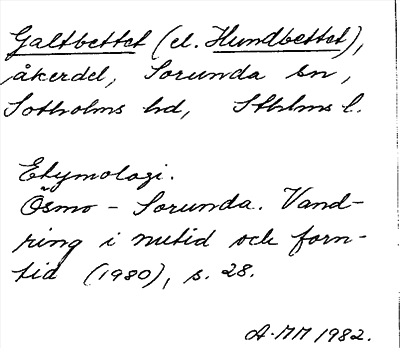 Galtbettet (el. Hundbettet),
åkerdel, Sorunda sn,
Sotholms hd, Sthlms l.
Etymologi.
Ösmo - Sorunda. Vand-
ring i nutid och forn-
tid (1980), s. 28.
A-MM 1982.